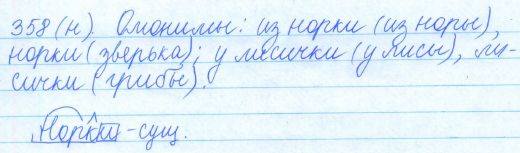 358 (н). Омонимы: из норки (из норы),
норки (зверька); у лисички (у лисы), ли-
сички (грибы).
Норки - сущ.